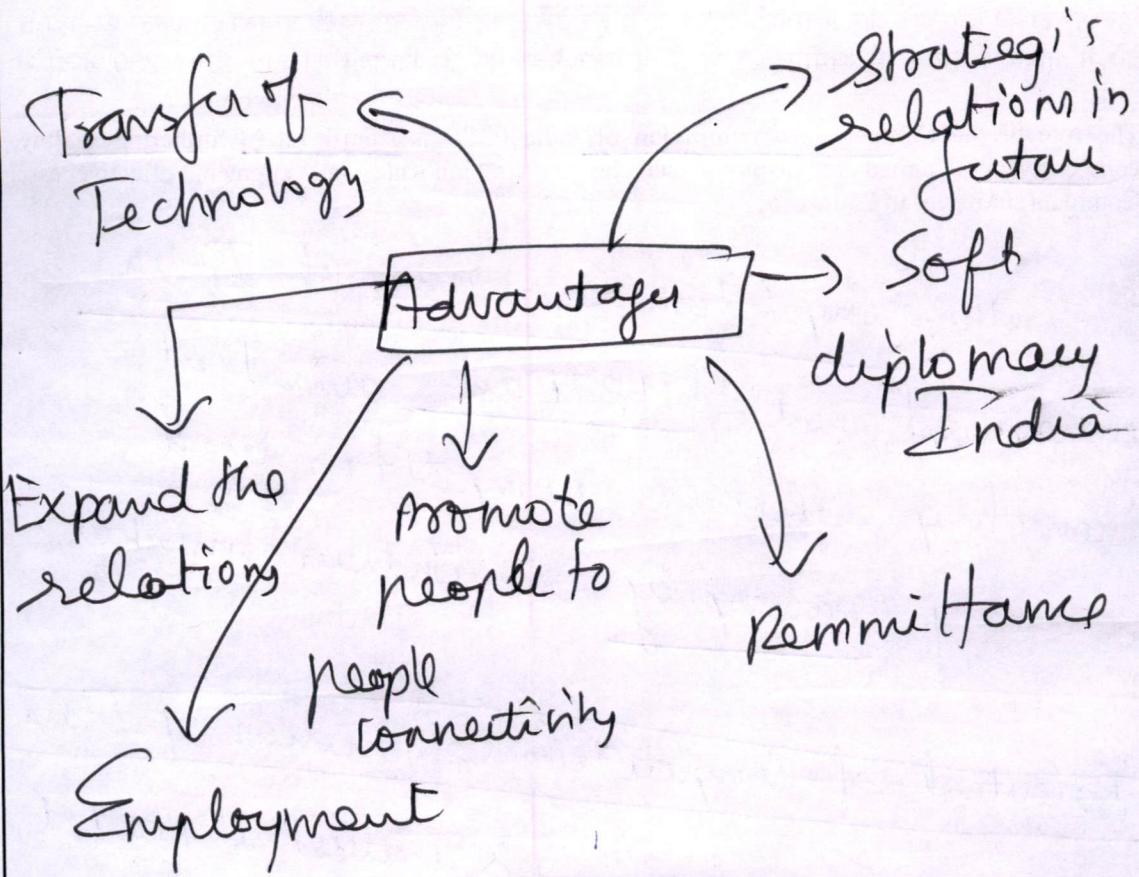 Transfer of
Technology
Strategi's
relation in
future
Advantages
Soft
diplomacy
India
Expand the
relations
promote
people to
people
connectivity
Remmittance
Employment